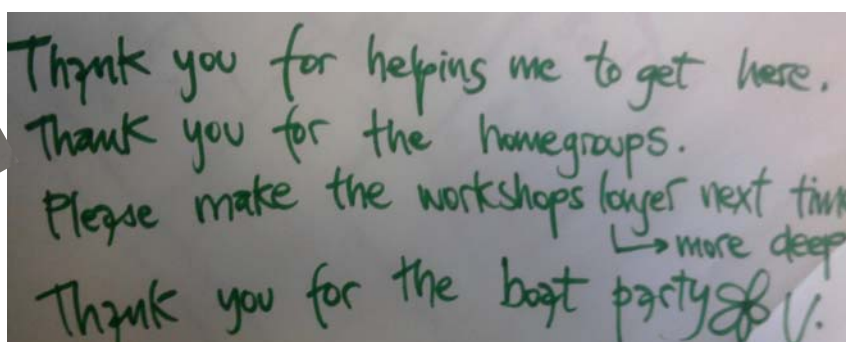 Thank you for helping me to get here.
Thank you for the homegroups.
Please make the workshops longer next time
↳ more deep
Thank you for the boat party V.